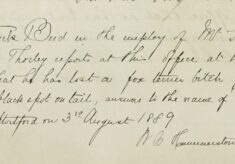 Bird in the employ of Mr
Thorley reports at this Office at
that he has lost a fox terrier bitch
black spot on tail, answers to the name of
Stortford on 3rd August 1889